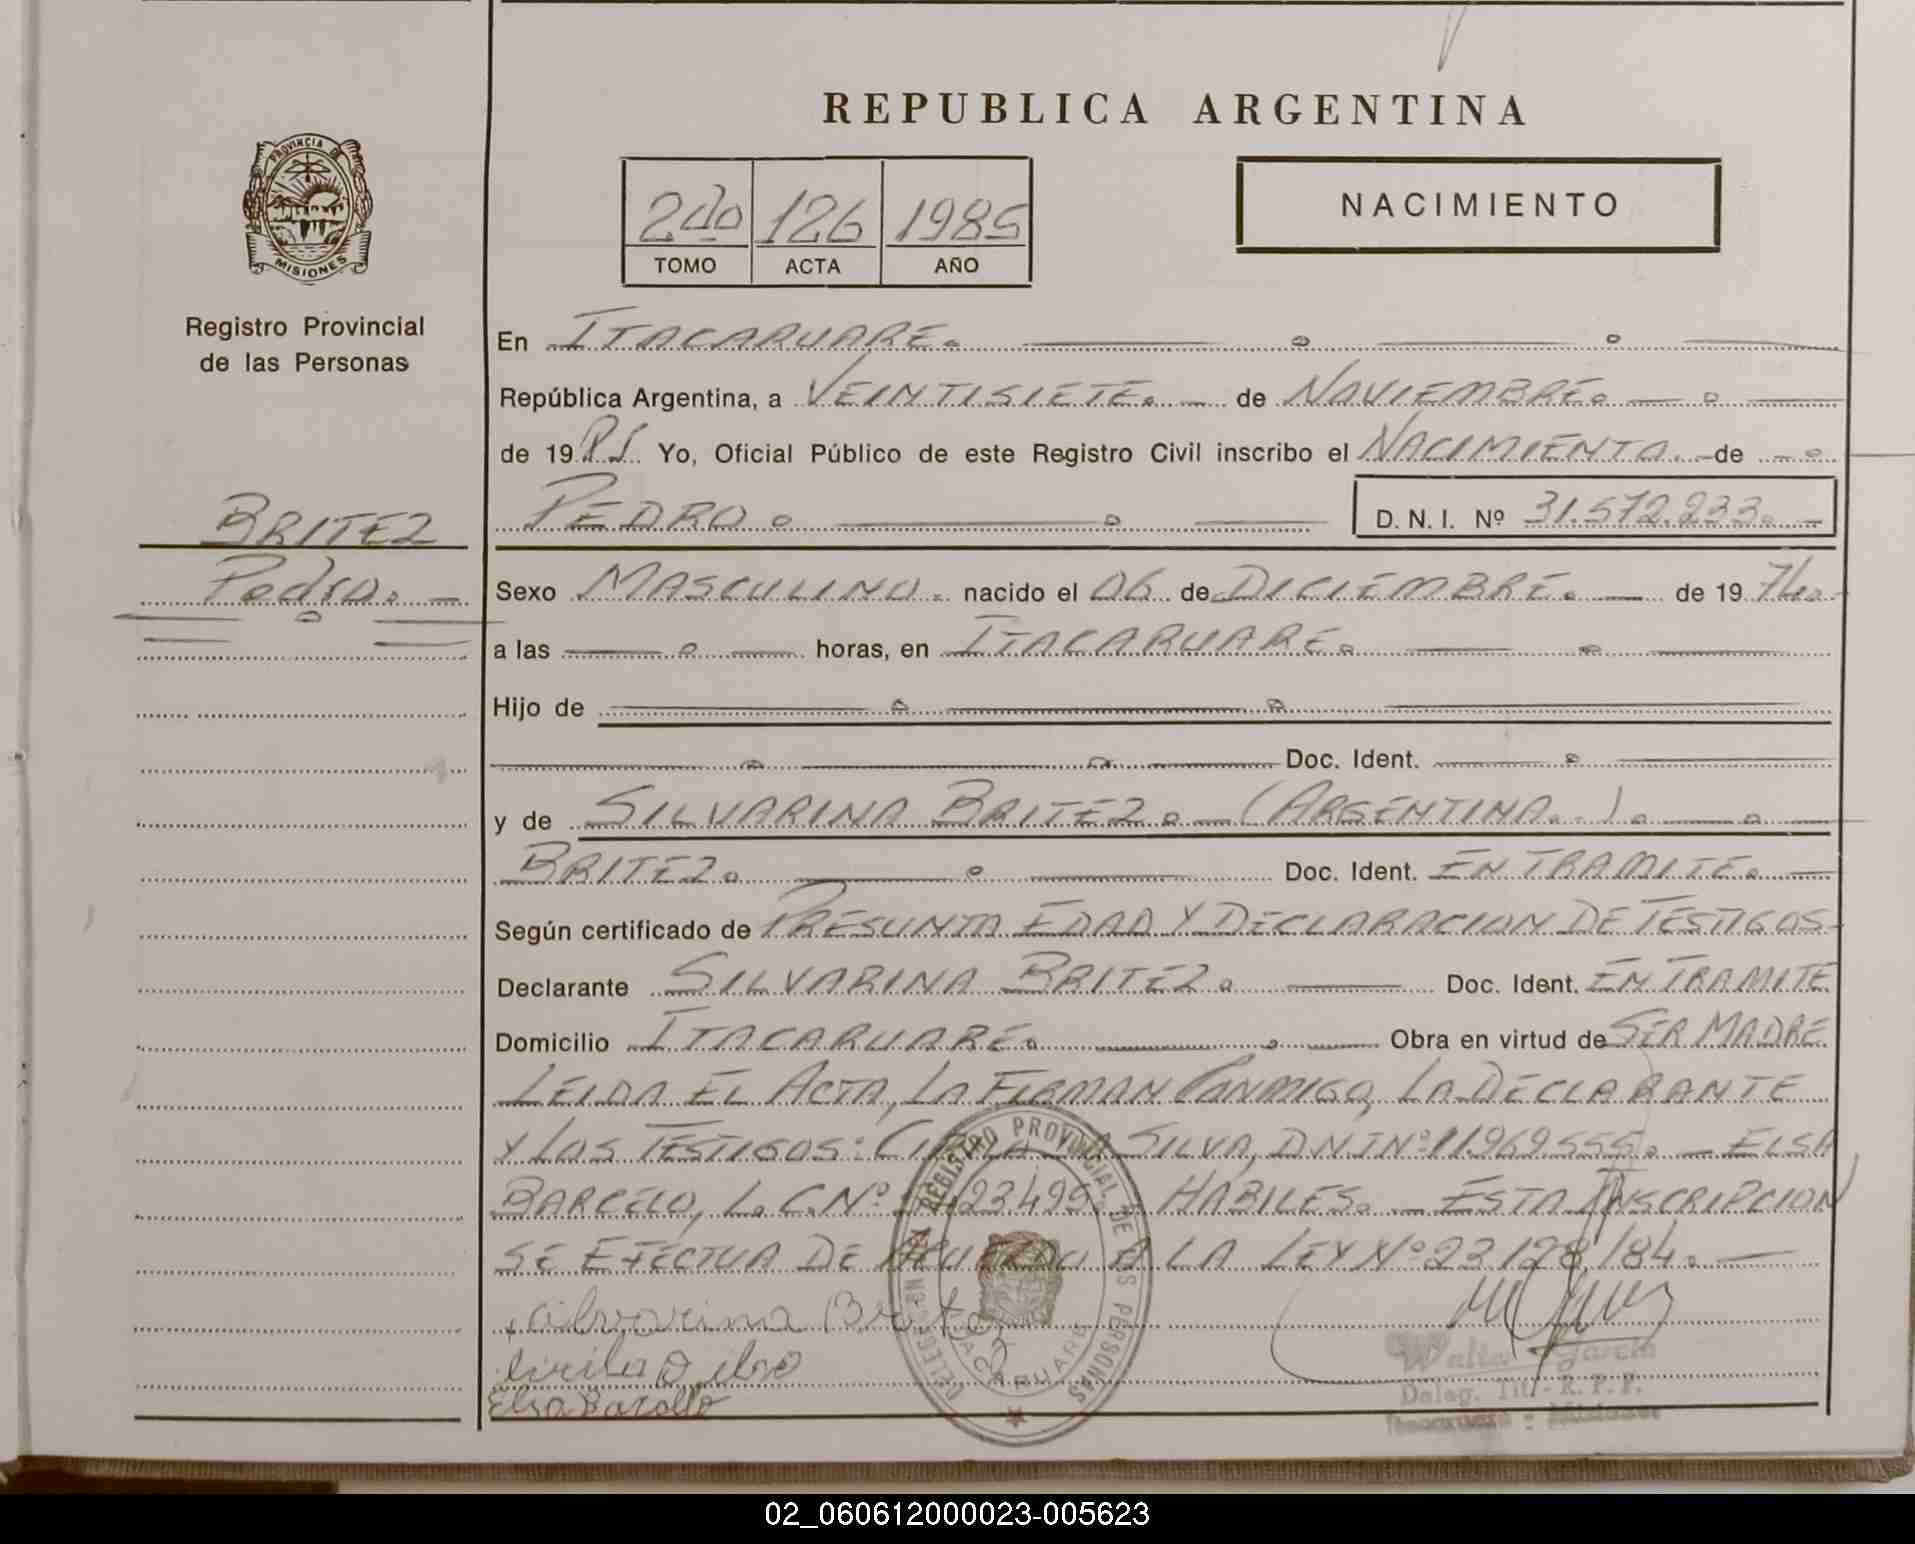 REPUBLICA ARGENTINA
PROVINCIA DE
MISIONES
Registro Provincial
de las Personas
2do 126 1985
TOMO ACTA AÑO
NACIMIENTO
En ITACARUARE.
República Argentina, a VEINTISIETE. de NOVIEMBRE.
de 1985 Yo, Oficial Público de este Registro Civil inscribo el NACIMIENTO. de
BRITEZ
Pedro.
PEDRO. D.N.I. Nº 31.572.233.
Sexo MASCULINO. nacido el 06 de DICIEMBRE. de 19 76.
a las horas, en ITACARUARE.
Hijo de
Doc. Ident.
y de SILVARINA BRITEZ. (ARGENTINA.).
BRITEZ. Doc. Ident. EN TRAMITE.
Según certificado de PRESUNTA EDAD Y DECLARACION DE TESTIGOS
Declarante SILVARINA BRITEZ. Doc. Ident. EN TRAMITE
Domicilio ITACARUARE. Obra en virtud de SER MADRE
LEIDA EL ACTA, LA FIRMAN CONMIGO, LA DECLARANTE
Y LOS TESTIGOS: SILVA, D.N.I Nº 11.969.555. ELSA
BARCELO, L.C. Nº HABILES. ESTA INSCRIPCION
SE EFECTUA DE ACUERDO A LA LEY Nº 23128/84.
DELEGACION REGISTRO PROVINCIAL DE LAS PERSONAS
ITACARUARE
Silvarina Britez
Elsa Barcelo
Walter García
Deleg. Tit. - R. P. P.
Itacaruaré - Misiones
02_060612000023-005623